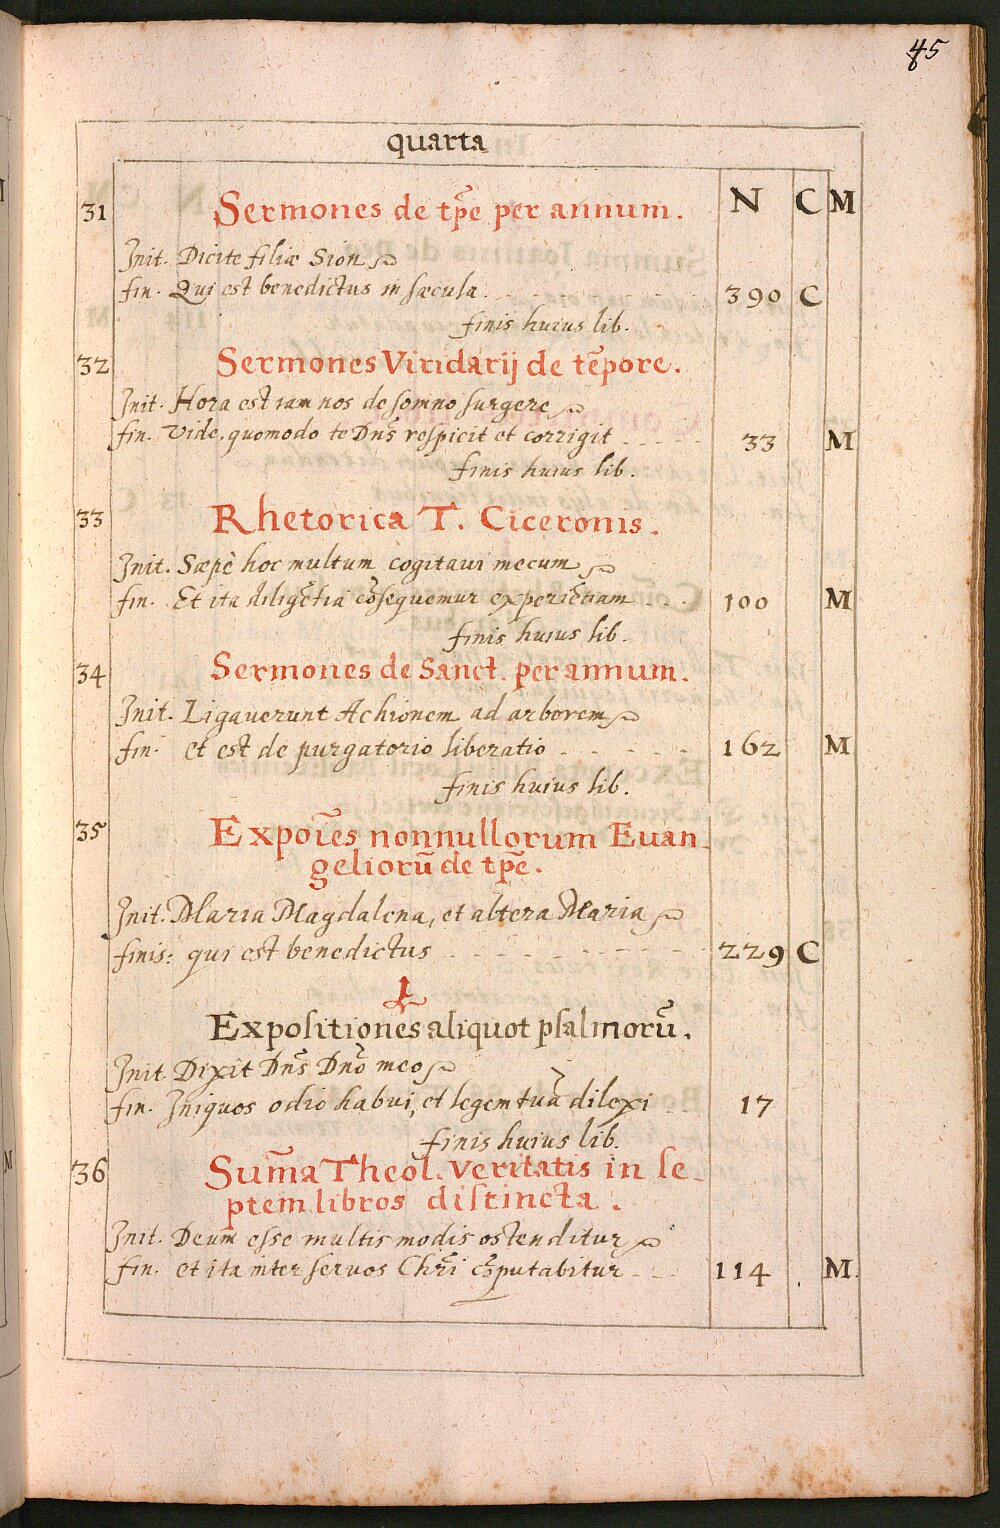 45
quarta
N C M
31 Sermones de tp̄e per annum.
Init. Dicite filiæ Sion
fin. Qui est benedictus in sæcula. 390 C
finis huius lib.
32 Sermones Viridarij de tēpore.
Init. Hora est iam nos de somno surgere
fin. Vide, quomodo te Dn̄s respicit et corrigit 33 M
finis huius lib.
33 Rhetorica T. Ciceronis.
Init. Sæpè hoc multum cogitaui mecum
fin. Et ita diligētia cōsequemur experiētiam 100 M
finis huius lib.
34 Sermones de Sanct. per annum.
Init. Ligauerunt Achionem ad arborem
fin. et est de purgatorio liberatio 162 M
finis huius lib.
35 Expoīes nonnullorum Euan-
geliorū de tp̄e.
Init. Maria Magdalena, et altera Maria
finis: qui est benedictus 229 C
Expositiones aliquot psalmorū.
Init. Dixit Dn̄s Dn̄o meo
fin. Iniquos odio habui, et legem tuā dilexi 17
finis huius lib.
36 Sum̄a Theol. Veritatis in se-
ptem libros distincta.
Init. Deum esse multis modis ostenditur
fin. et ita inter seruos Chr̄i cōputabitur 114 M.